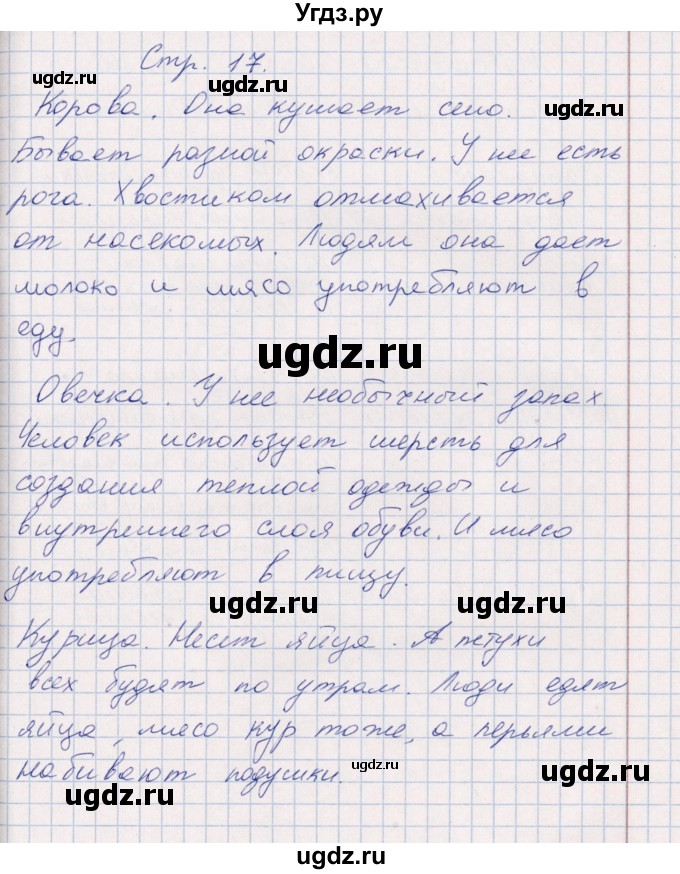 Угдз.ру
Стр. 17.
ugdz.ru ugdz.ru ugdz.ru
Корова. Она кушает сено.
Бывает разной окраски. У нее есть
рога. Хвостиком отмахивается
от насекомых. Людям она дает
молоко и мясо употребляют в
еду.
ugdz.ru
Овечка. У нее необычный запах
Человек использует шерсть для
создания теплой одежды и
внутреннего слоя обуви. И мясо
употребляют в пищу.
ugdz.ru ugdz.ru
Курица. Несет яйца. А петухи
всех будят по утрам. Люди едят
яйца, мясо кур тоже, а перьями
набивают подушки.
ugdz.ru ugdz.ru ugdz.ru
ugdz.ru